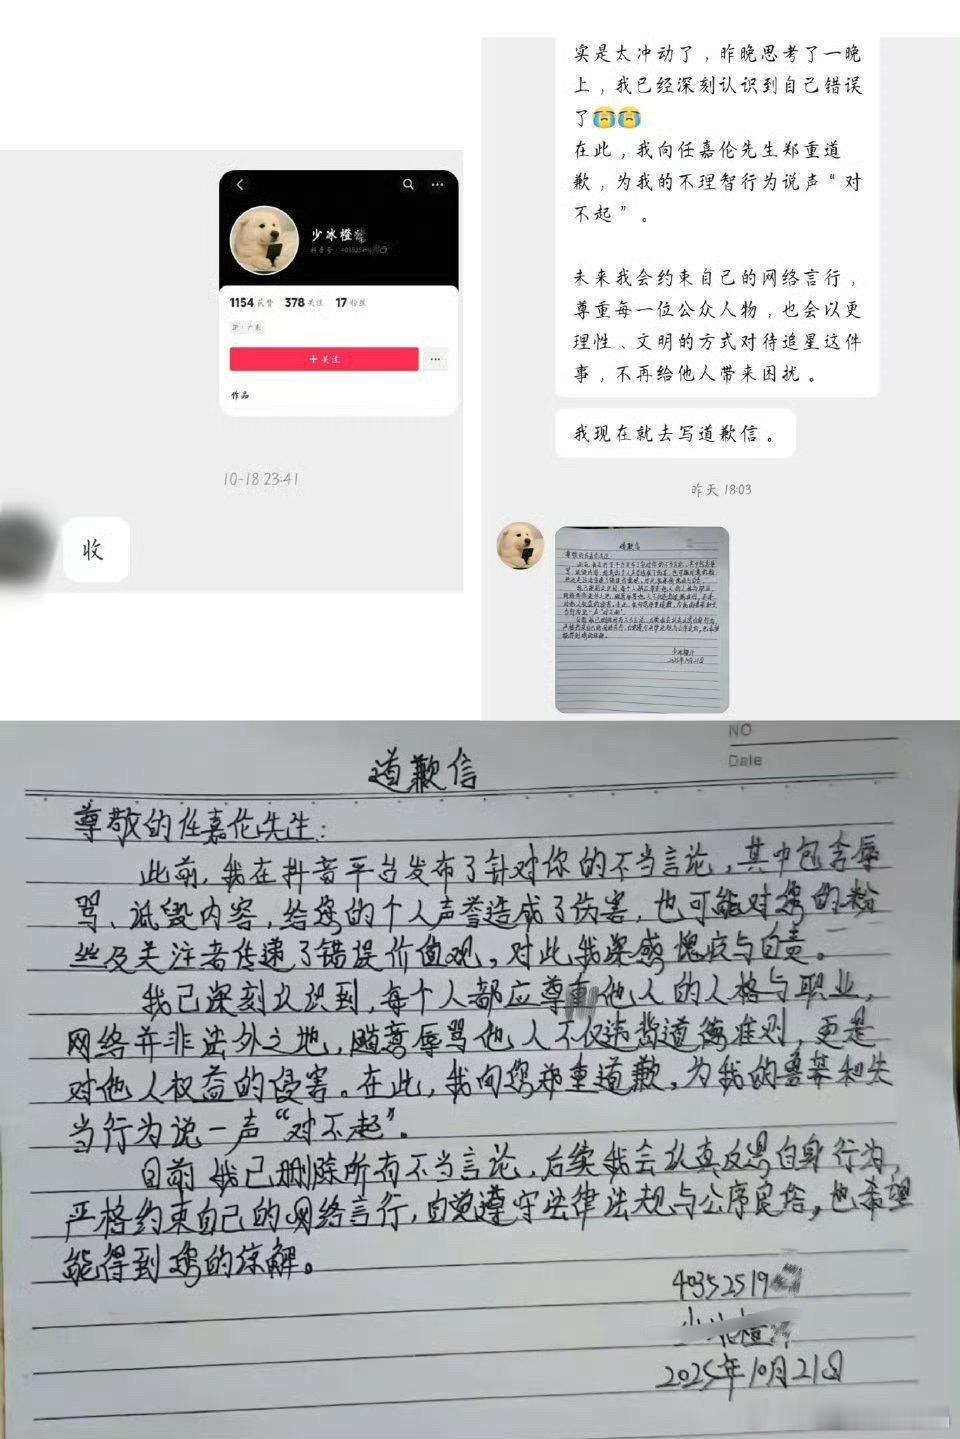 少冰橙
抖音号：40352519
1154 获赞 378 关注 17 粉丝
IP：广东
+ 关注
作品
10-18 23:41
收
实是太冲动了，昨晚思考了一晚
上，我已经深刻认识到自己错误
了😭😭
在此，我向任嘉伦先生郑重道
歉，为我的不理智行为说声“对
不起”。
未来我会约束自己的网络言行，
尊重每一位公众人物，也会以更
理性、文明的方式对待追星这件
事，不再给他人带来困扰。
我现在就去写道歉信。
昨天 18:03
NO
Date
道歉信
尊敬的任嘉伦先生：
此前，我在抖音平台发布了针对你的不当言论，其中包含辱
骂、诋毁内容，给您的个人声誉造成了伤害，也可能对您的粉
丝及关注者传递了错误价值观，对此我深感愧疚与自责。
我已深刻认识到，每个人都应尊重他人的人格与职业，
网络并非法外之地，随意辱骂他人不仅违背道德准则，更是
对他人权益的侵害。在此，我向您郑重道歉，为我的鲁莽和失
当行为说一声“对不起”。
目前我已删除所有不当言论，后续我会认真反思自身行为，
严格约束自己的网络言行，自觉遵守法律法规与公序良俗，也希望
能得到您的谅解。
40352519
少冰橙
2025年10月21日